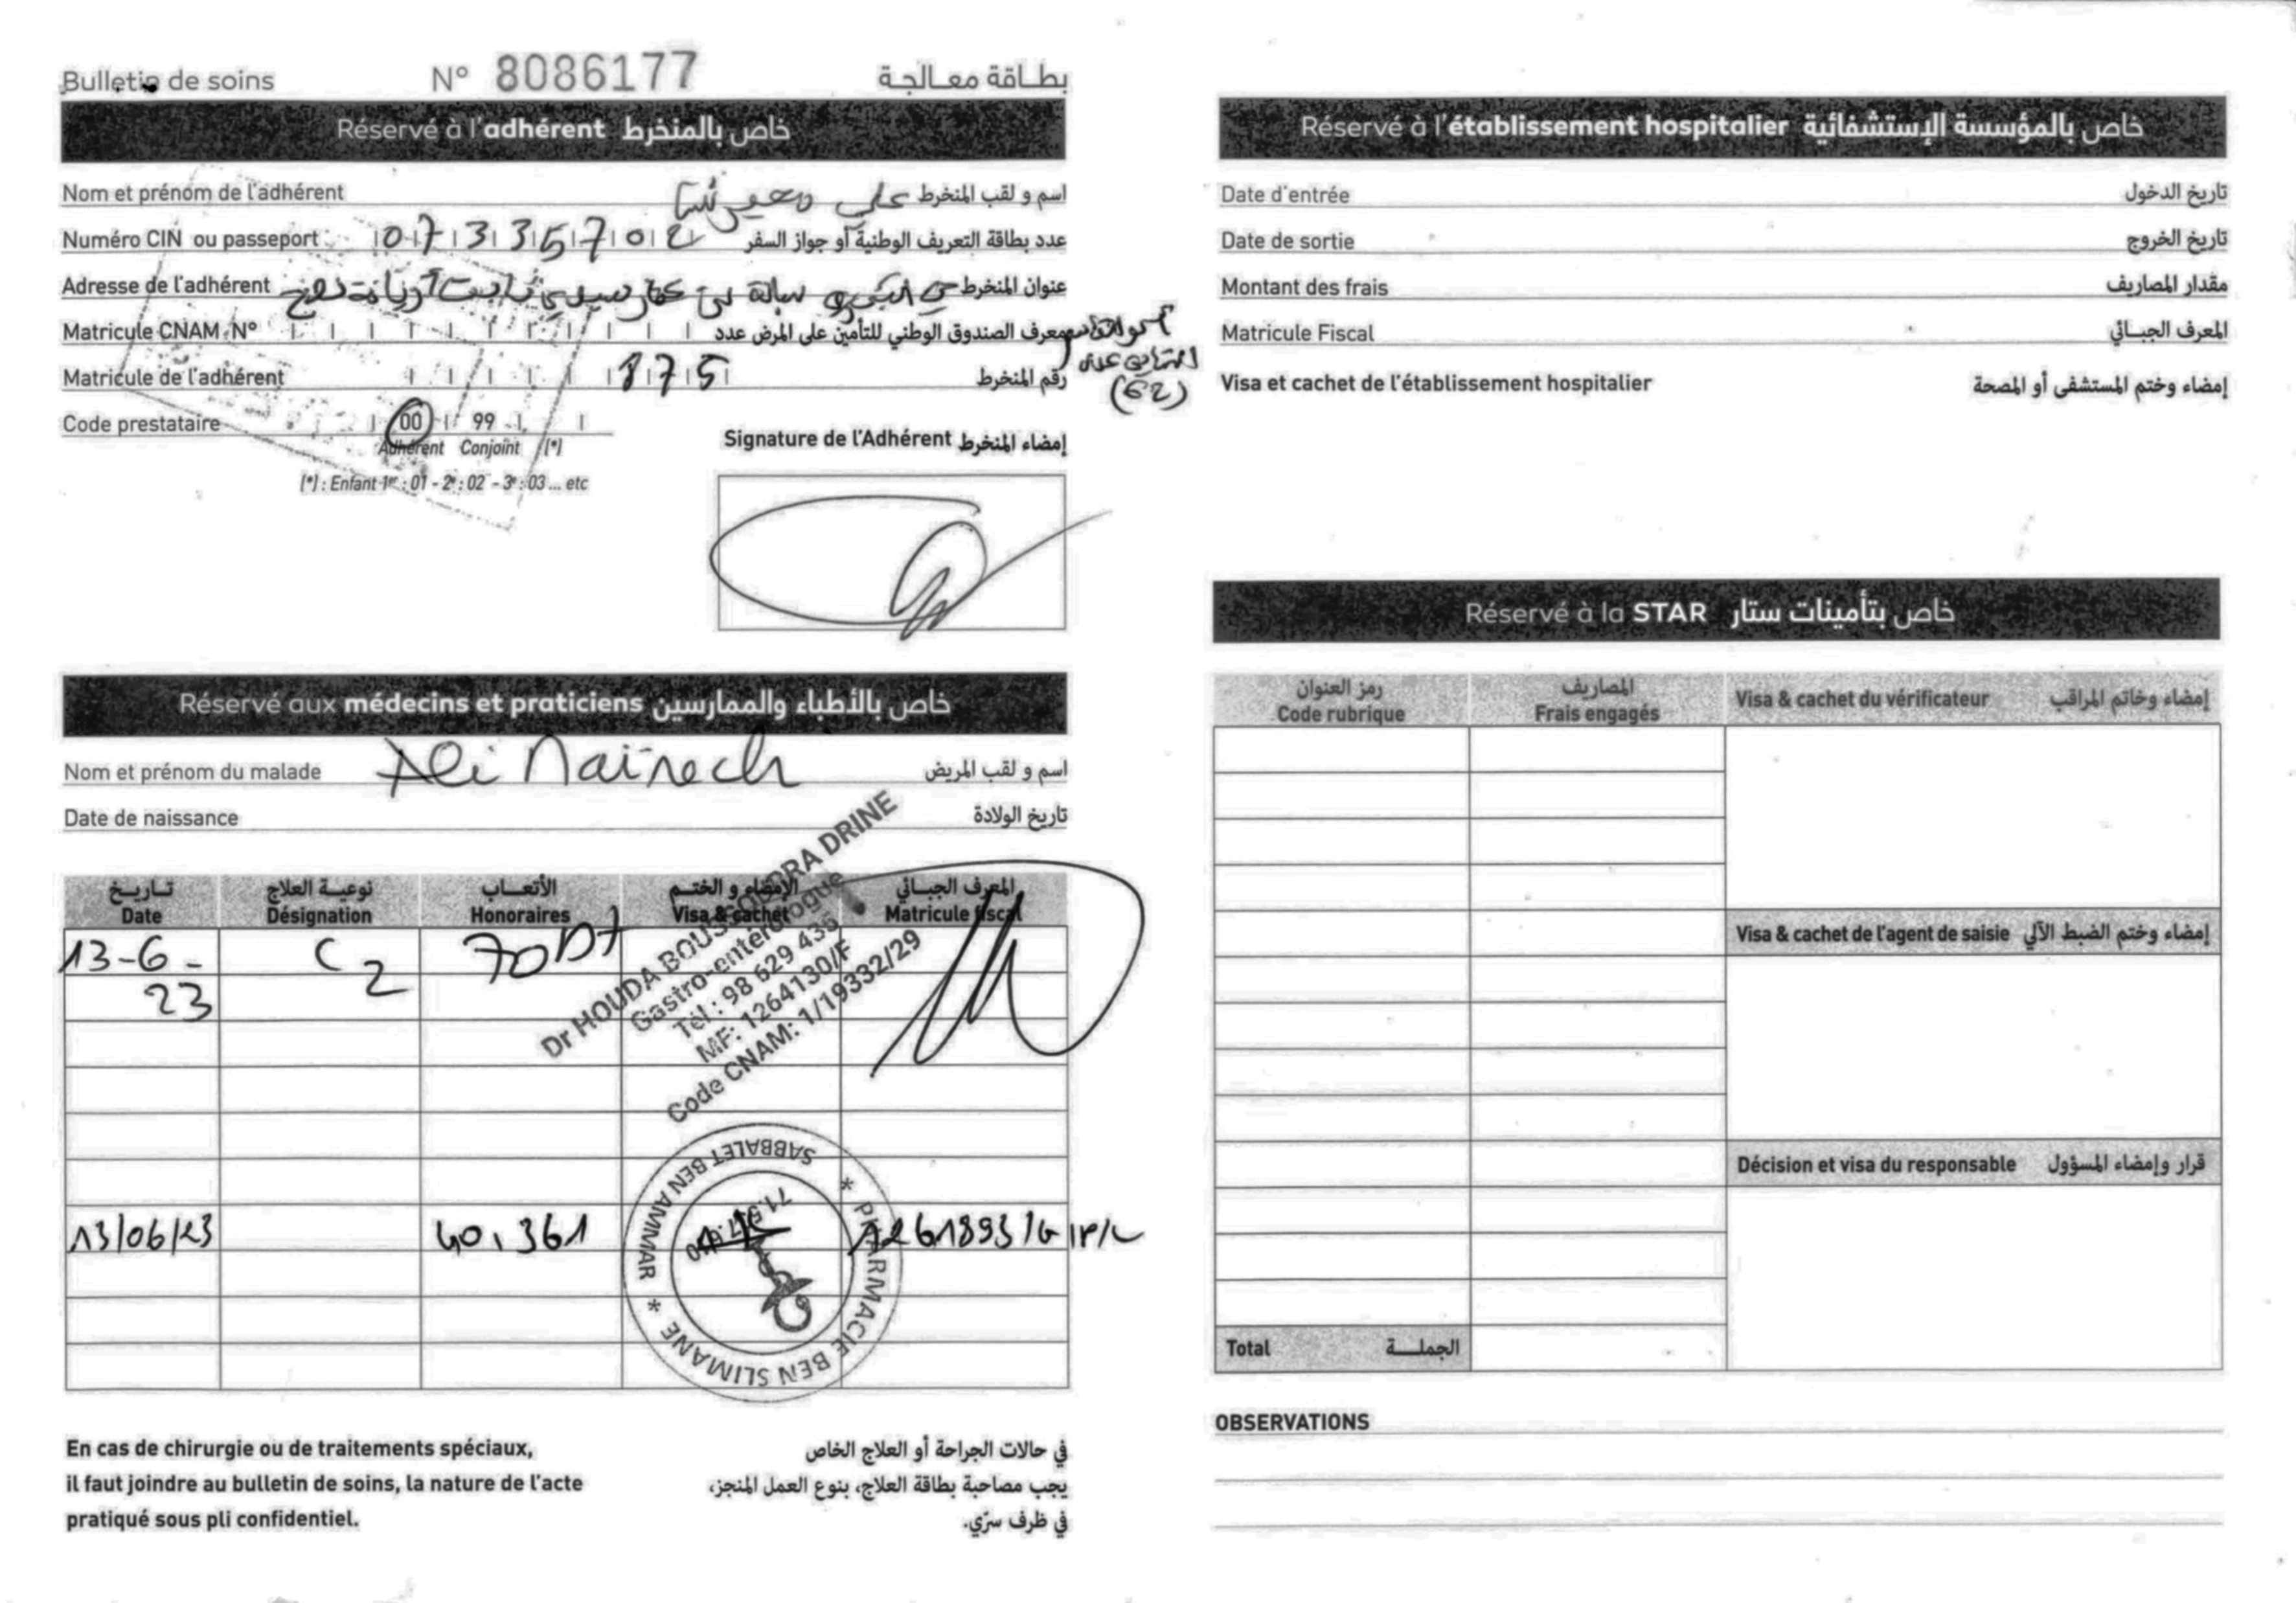 Bulletin de soins N° 8086177 بطاقة معالجة
Réservé à l'adhérent خاص بالمنخرط
Nom et prénom de l'adhérent علي معيرش اسم و لقب المنخرط
Numéro CIN ou passeport 07335702 عدد بطاقة التعريف الوطنية أو جواز السفر
Adresse de l'adhérent سيدي ثابت أريانة عنوان المنخرط
Matricule CNAM N° معرف الصندوق الوطني للتأمين على المرض عدد
Matricule de l'adhérent 875 رقم المنخرط
(62)
Code prestataire 00 99
Adhérent Conjoint (*)
(*) : Enfant 1er : 01 - 2e : 02 - 3e : 03 ... etc
Signature de l'Adhérent إمضاء المنخرط
Réservé aux médecins et praticiens خاص بالأطباء والممارسين
Nom et prénom du malade Ali Mairech اسم و لقب المريض
Date de naissance تاريخ الولادة
تاريخ نوعية العلاج الأتعاب الإمضاء و الختم المعرف الجبائي
Date Désignation Honoraires Visa & cachet Matricule fiscal
13-6-23 C2 70Dt
Dr HOUDA BOUSSORRA DRINE
Gastro-entérologue
Tél : 98 629 435
MF: 1264130/F
Code CNAM: 1/19332/29
13/06/23 40,361 1261893/G/P/C
* PHARMACIE BEN SLIMANE * SABBALET BEN AMMAR
En cas de chirurgie ou de traitements spéciaux,
il faut joindre au bulletin de soins, la nature de l'acte
pratiqué sous pli confidentiel.
في حالات الجراحة أو العلاج الخاص
يجب مصاحبة بطاقة العلاج، بنوع العمل المنجز،
في ظرف سرّي.
Réservé à l'établissement hospitalier خاص بالمؤسسة الإستشفائية
Date d'entrée تاريخ الدخول
Date de sortie تاريخ الخروج
Montant des frais مقدار المصاريف
Matricule Fiscal المعرف الجبائي
Visa et cachet de l'établissement hospitalier إمضاء وختم المستشفى أو المصحة
Réservé à la STAR خاص بتأمينات ستار
رمز العنوان المصاريف
Code rubrique Frais engagés Visa & cachet du vérificateur إمضاء وخاتم المراقب
Visa & cachet de l'agent de saisie إمضاء وختم الضبط الآلي
Décision et visa du responsable قرار وإمضاء المسؤول
Total الجملة
OBSERVATIONS